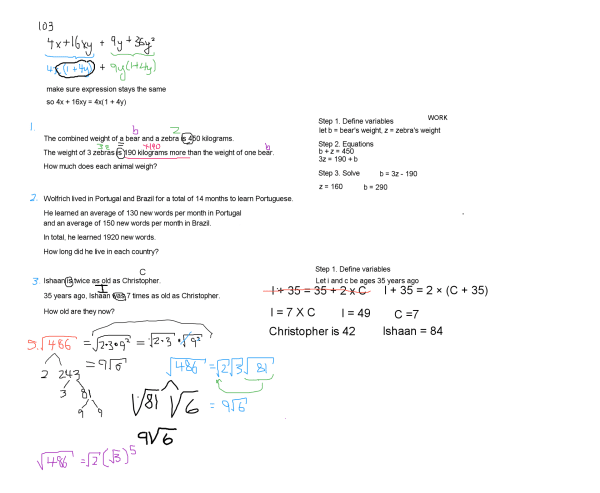 103
4x+16xy + 9y+36y²
4x(1+4y) + 9y(1+4y)
make sure expression stays the same
so 4x + 16xy = 4x(1 + 4y)
WORK
1.
b z
The combined weight of a bear and a zebra is 450 kilograms.
3z +190 b
The weight of 3 zebras is 190 kilograms more than the weight of one bear.
How much does each animal weigh?
Step 1. Define variables
let b = bear's weight, z = zebra's weight
Step 2. Equations
b + z = 450
3z = 190 + b
Step 3. Solve b = 3z - 190
z = 160 b = 290
2. Wolfrich lived in Portugal and Brazil for a total of 14 months to learn Portuguese.
He learned an average of 130 new words per month in Portugal
and an average of 150 new words per month in Brazil.
In total, he learned 1920 new words.
How long did he live in each country?
C
3 Ishaan is twice as old as Christopher.
I
35 years ago, Ishaan was 7 times as old as Christopher.
How old are they now?
Step 1. Define variables
Let i and c be ages 35 years ago
I + 35 = 35 + 2 x C I + 35 = 2 × (C + 35)
I = 7 X C I = 49 C =7
Christopher is 42 Ishaan = 84
5. √486 = √2·3·9² = √2·3 · √9²
= 9√6
2 243
3 81
9 9
√486 = √2 √3 √81
= 9√6
√81 √6
9√6
√486 = √2 (√3)⁵